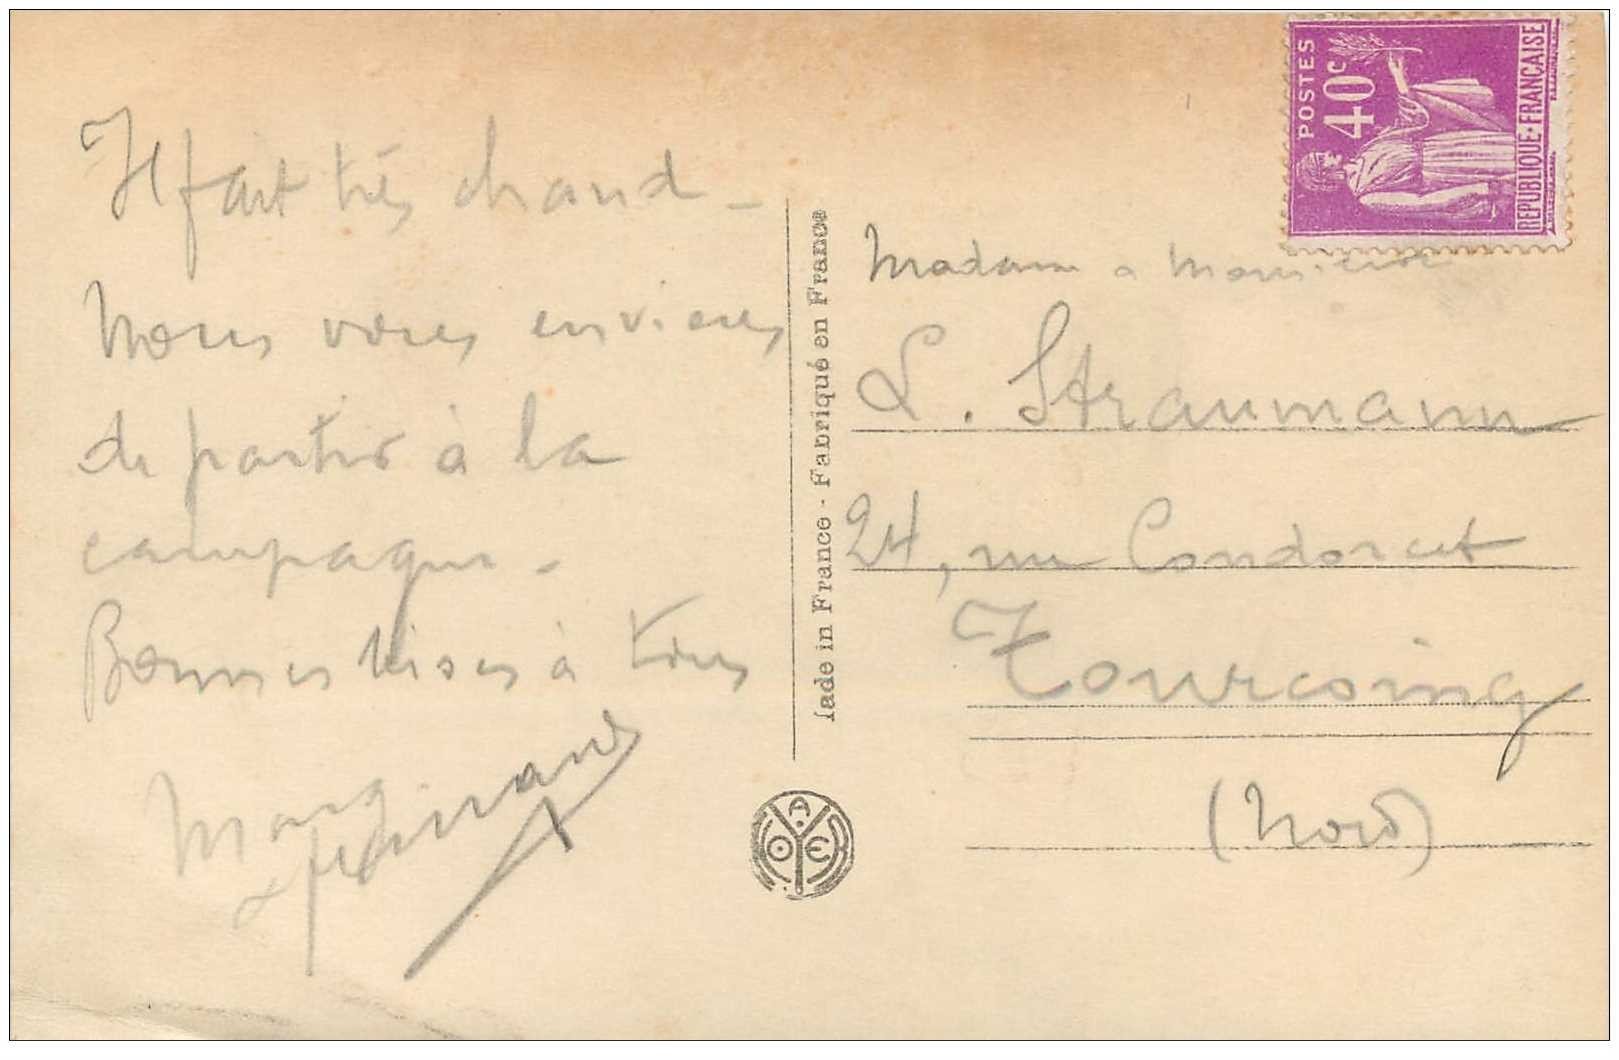 Il fait très chaud -
Nous vous envions
de partir à la
campagne -
Bonnes bises à tous
POSTES
40c
REPUBLIQUE·FRANÇAISE
Madame & Monsieur
L. Straumann
24, rue Condorcet
Tourcoing
(Nord)
ade in France - Fabriqué en France